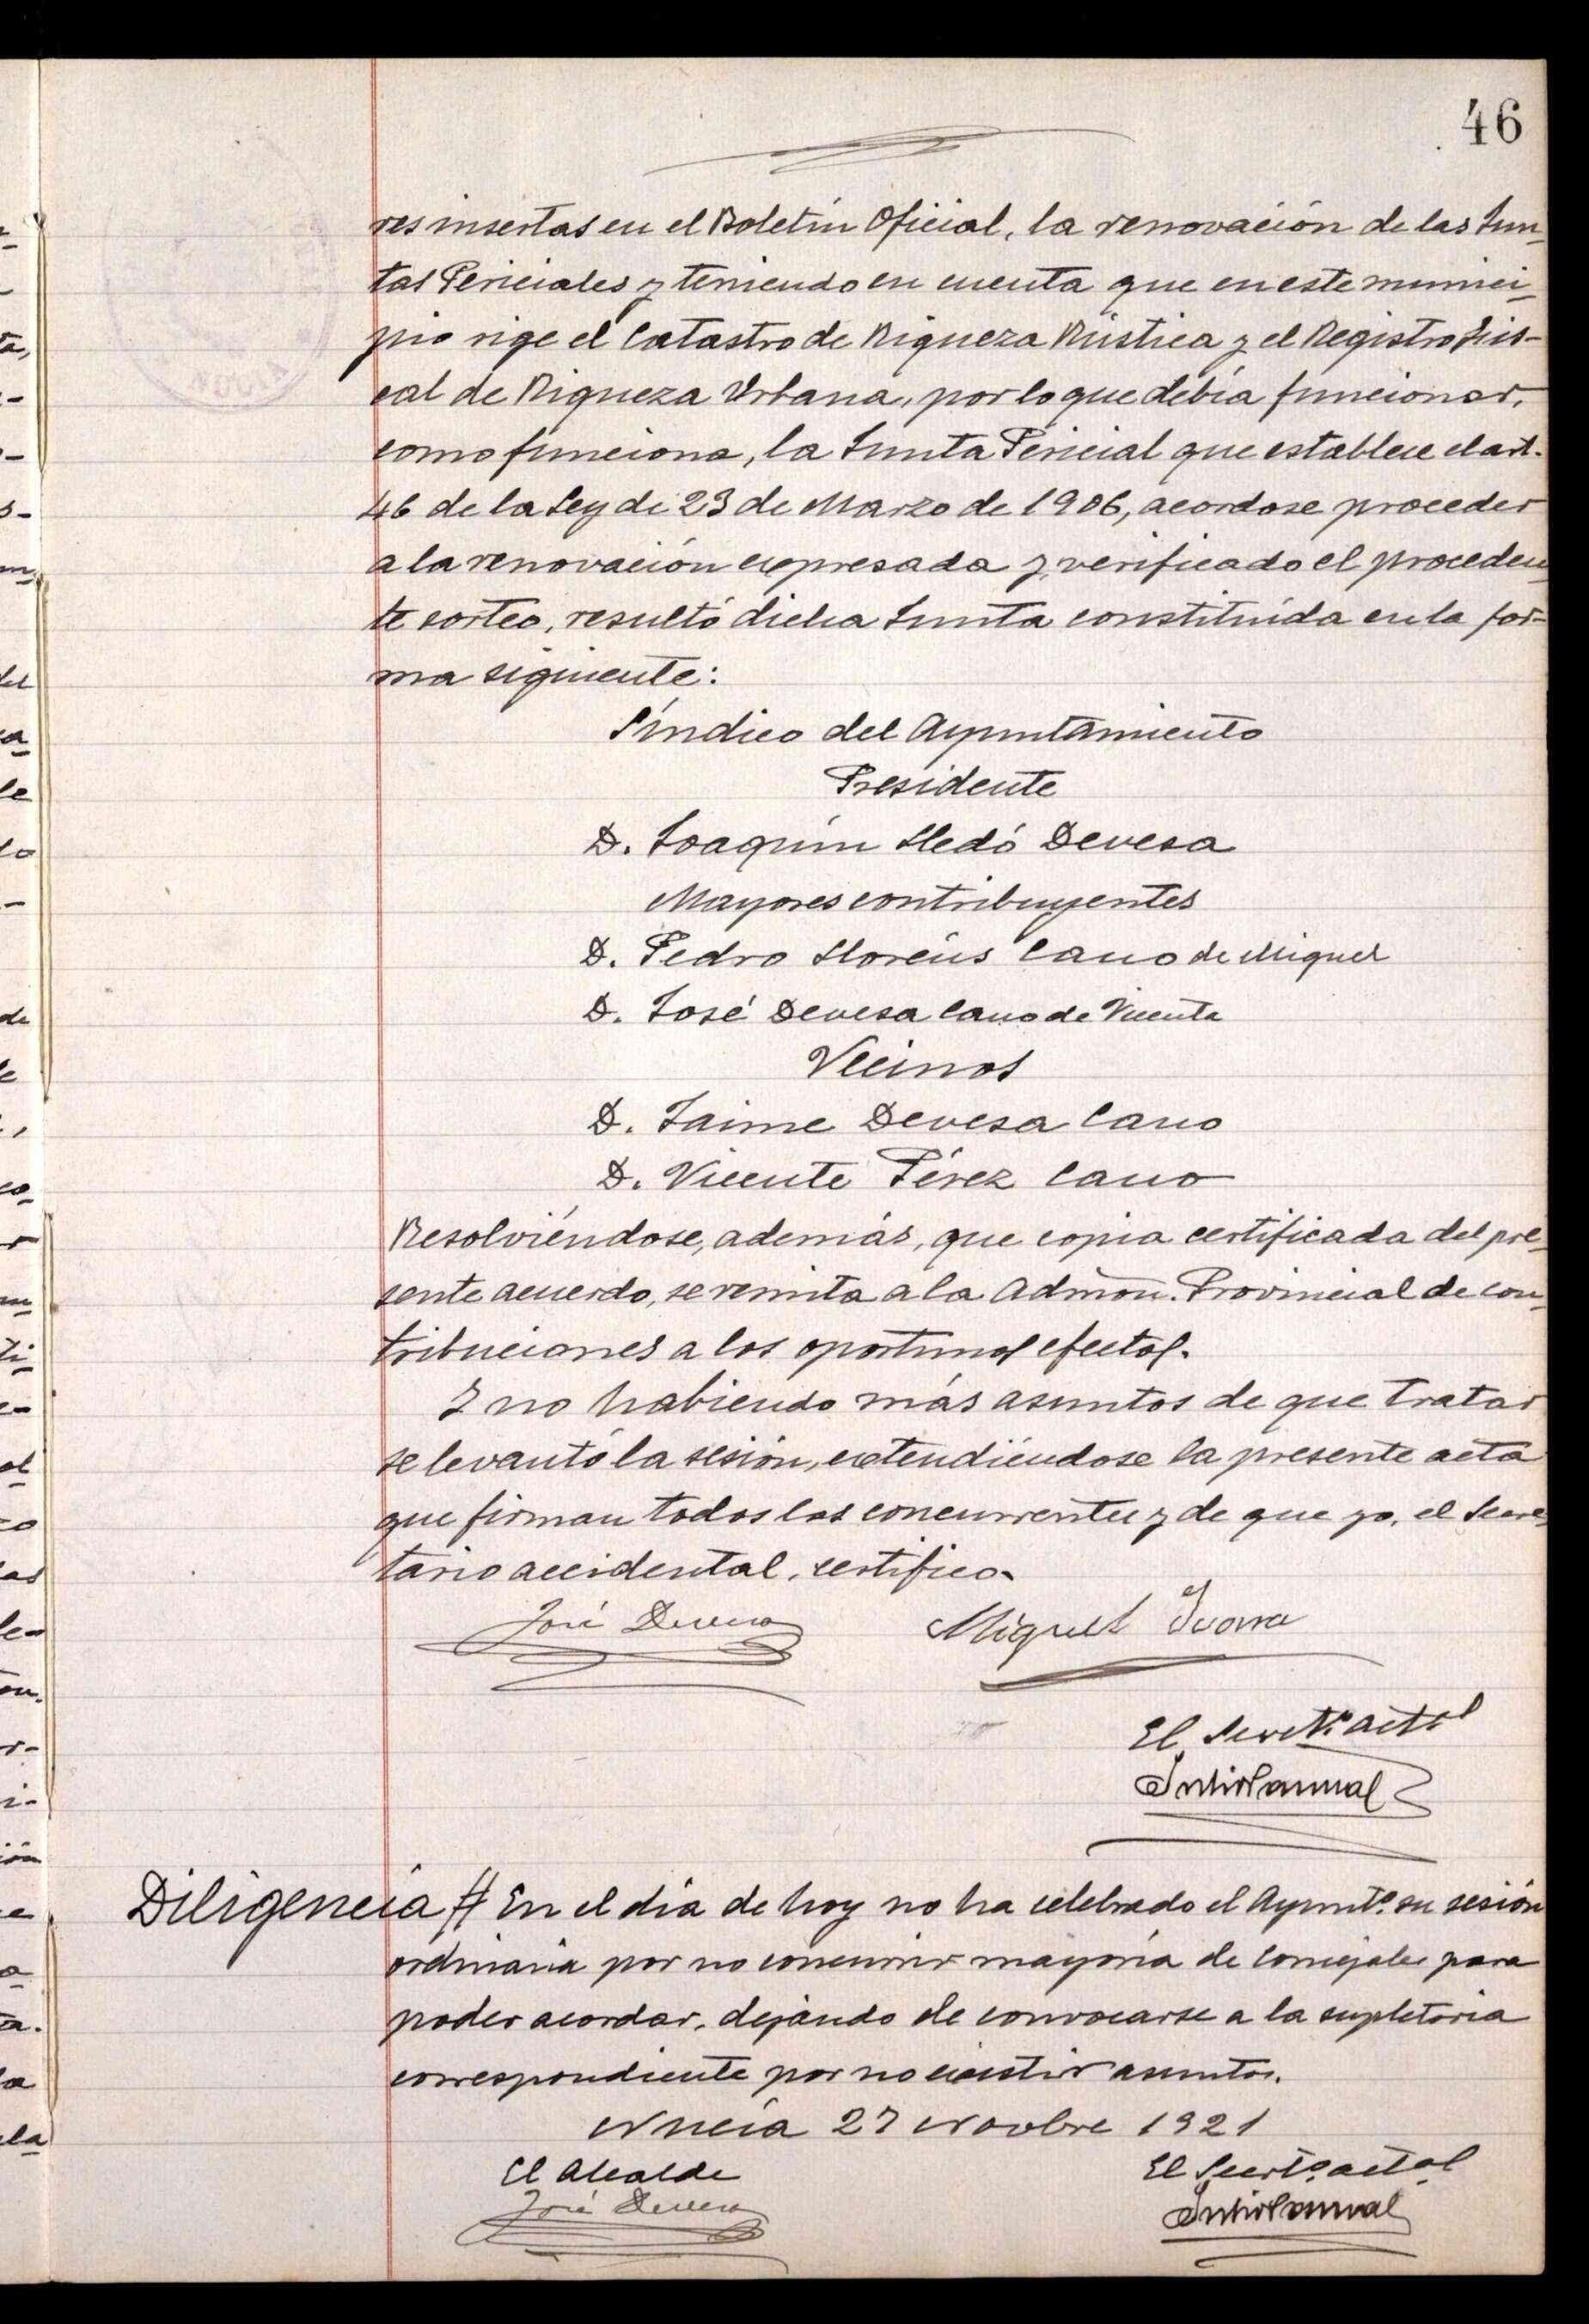 46
res insertas en el Boletín Oficial, la renovación de las Jun-
tas Periciales y teniendo en cuenta que en este munici-
pio rige el Catastro de Riqueza Rústica y el Registro fis-
cal de Riqueza Urbana, por lo que debía funcionar,
como funciona, la Junta Pericial que establece el art.
46 de la Ley de 23 de Marzo de 1906, acordose proceder
a la renovación expresada y, verificado el proceden-
te sorteo, resultó dicha Junta constituída en la for-
ma siguiente:
Síndico del Ayuntamiento
Presidente
D. Joaquín Lledó Devesa
Mayores contribuyentes
D. Pedro Lloréns Cano de Miguel
D. José Devesa Cano de Vicente
Vecinos
D. Jaime Devesa Cano
D. Vicente Pérez Cano
Resolviéndose, además, que copia certificada del pre-
sente acuerdo, se remita a la Admón. Provincial de con-
tribuciones a los oportunos efectos.
Y no habiendo más asuntos de que tratar
se levantó la sesión, extendiéndose la presente acta
que firman todos los concurrentes y de que yo, el Secre-
tario accidental, certifico.
José Devesa Miguel Ivorra
El Secret.º actal
Diligencia # En el día de hoy no ha celebrado el Ayuntº. su sesión
ordinaria por no concurrir mayoría de Concejales para
poder acordar, dejando de convocarse a la supletoria
correspondiente por no existir asuntos.
Nucía 27 Novbre 1921
El Alcalde El Secrtº. actal
José Devesa